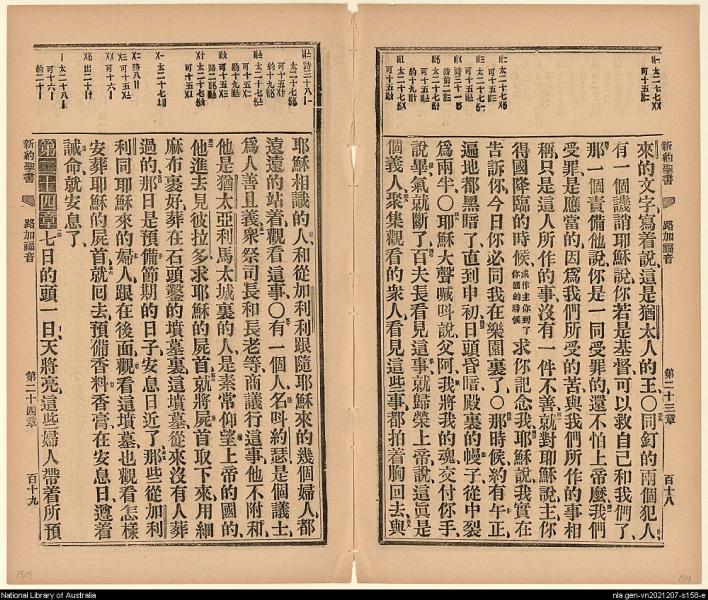 新約聖書
路加福音
第二十三章
百十八
來的文字寫着說這是猶太人的王〇同釘的兩個犯人
有一個譏誚耶穌說你若是基督可以救自己和我們了
那一個責備他說你是一同受罪的還不怕上帝麼我們
受罪是應當的因爲我們所受的苦與我們所作的事相
稱只是這人所作的事沒有一件不善就對耶穌說主你
得國降臨的時候求你記念我耶穌說我實在
告訴你今日你必同我在樂園裏了〇那時候約有午正
遍地都黑暗了直到申初日頭昏暗殿裏的幔子從中裂
爲兩半〇耶穌大聲喊呌說父阿我將我的魂交付你手
說畢氣就斷了百夫長看見這事就歸榮上帝說這眞是
個義人聚集觀看的衆人看見這些事都拍着胸回去與
耶穌相識的人和從加利利跟隨耶穌來的幾個婦人都
遠遠的站着觀看這事〇有一個人名呌約瑟是個議士
爲人善且義衆祭司長和長老等商議行這事他不附和
他是猶太亞利馬太城裏的人是素常仰望上帝的國的
他進去見彼拉多求耶穌的屍首就將屍首取下來用細
麻布裹好葬在石頭鑿的墳墓裏這墳墓從來沒有人葬
過的那日是預備節期的日子安息日近了那些從加利
利同耶穌來的婦人跟在後面觀看這墳墓也觀看怎樣
安葬耶穌的屍首就回去預備香料香膏在安息日遵着
誡命就安息了
第二十四章七日的頭一日天將亮這些婦人帶着所預
新約聖書
路加福音
第二十四章
百十九
National Library of Australia
nla.gen-vn2021207-s158-e